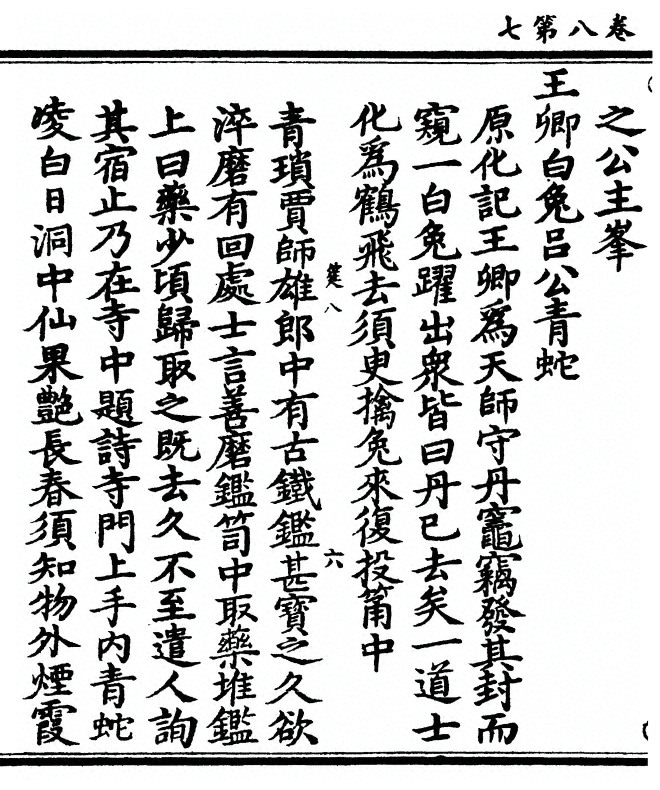 七第八卷
之公主峯
王卿白兔呂公青蛇
原化記王卿爲天師守丹竈竊發其封而
窺一白兔躍出衆皆曰丹已去矣一道士
化爲鶴飛去須臾擒兔來復投筩中
青瑣賈師雄郎中有古鐵鑑甚寶之久欲
淬磨有回處士言善磨鑑笥中取藥堆鑑
上曰藥少頃歸取之既去久不至遣人詢
其宿止乃在寺中題詩寺門上手内青蛇
凌白日洞中仙果艷長春須知物外煙霞
八
六